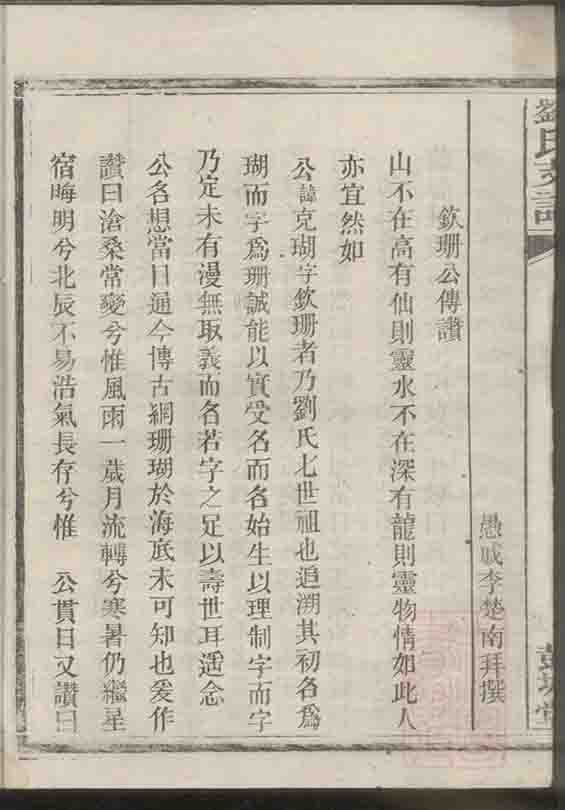 劉氏支譜
彭城堂
愚戚李楚南拜撰
欽珊公傳讚
山不在高有仙則靈水不在深有龍則靈物情如此人
亦宜然如
公諱克瑚字欽珊者乃劉氏七世祖也追溯其初名爲
瑚而字爲珊誠能以實受名而名始生以理制字而字
乃定未有漫無取義而名若字之足以壽世耳遥念
公名想當日通今博古網珊瑚於海底未可知也爰作
讚曰滄桑常變兮惟風雨一歲月流轉兮寒暑仍繼星
宿晦明兮北辰不易浩氣長存兮惟 公貫日又讚曰